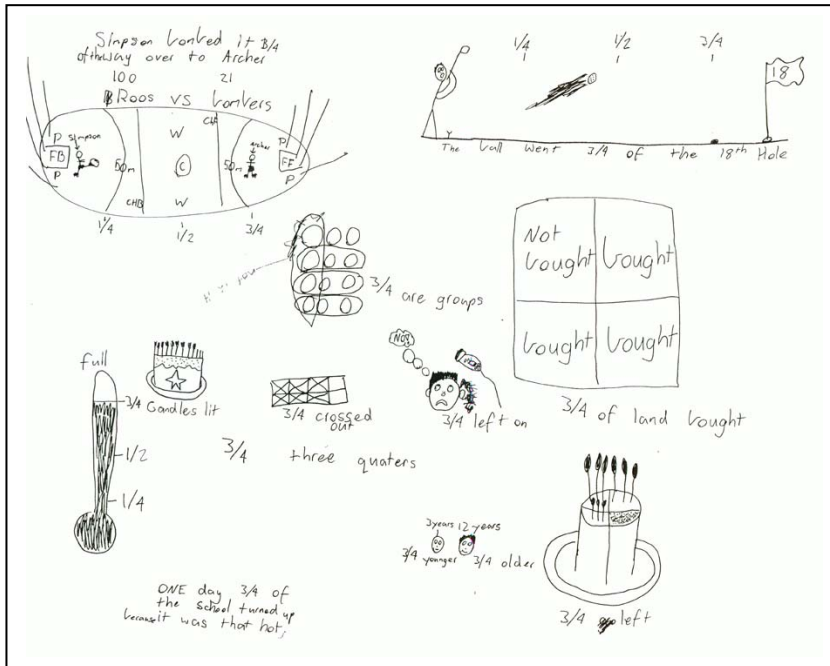 Simpson bonked it 3/4
of the way over to Archer
100 21
Roos vs bonkers
P Simpson
FB
P
50m
CHB
W
C
W
CHF
50m
archer
P
FF
P
1/4 1/2 3/4
1/4 1/2 3/4
18
The ball went 3/4 of the 18th Hole
3/4 are groups
Not bought
bought
bought
bought
3/4 of land bought
full
3/4
1/2
1/4
Candles lit
3/4 crossed
out
NO!
3/4 left on
3/4 three quaters
3years 12years
3/4 younger
3/4 older
3/4 left
ONE day 3/4 of
the school turned up
because it was that hot,